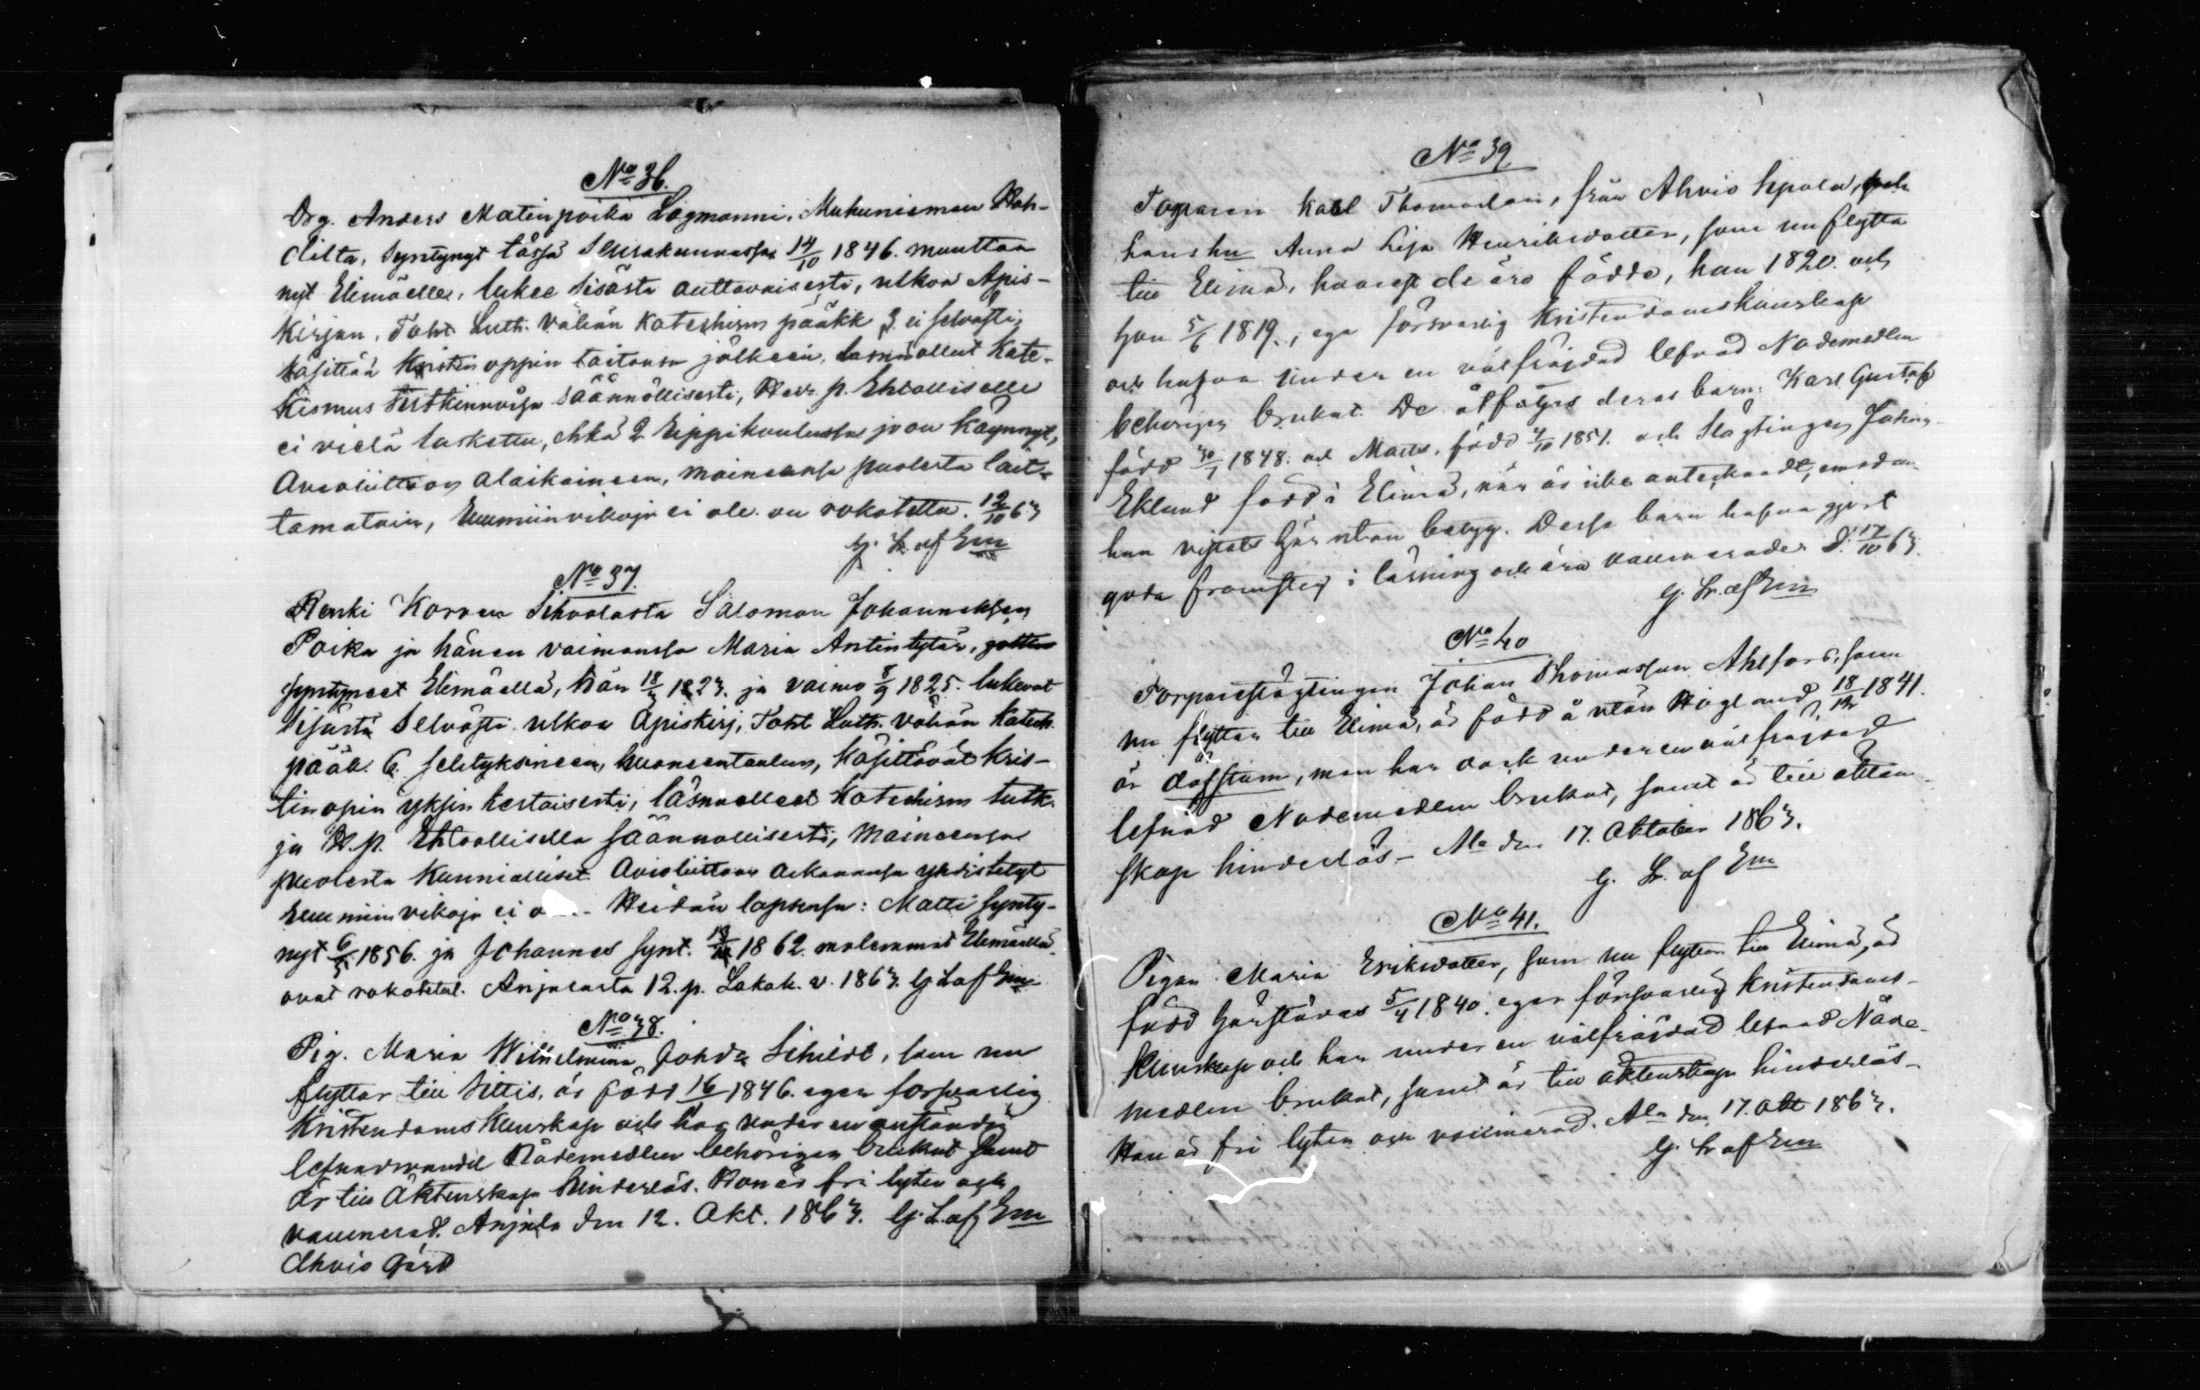 No 36.
Drg. Anders Matinpoika Lagmanni, Mukunieman Kah-
dilta, Syntynyt tässä Seurakunnassa 14/10 1846. muuttaa
nyt Elimäelle, lukee sisästä auttavaisesti, ulkoa Apis-
kirjan, Toht Luth. vähän Katechism pääkk 3. ei selvästi;
käsittää Kristin oppin taitonsa jälkeen, läsnä ollut Kate-
kismus tutkinnoisa säännöllisesti, Herr. p. Ehtolliselle
ei vielä laskettu, ehkä 2 Rippikoulussa jo on käynnyt,
Avioliittoon alaikäinen, maineensa puolesta lait-
tamatoin, Ruumiinvikoja ei ole. on rokotettu. 12/10 63
G. L. af Em
No 37.
Renki Korven Sihvolasta Salomon Johanneksen
Poika ja hänen vaimonsa Maria Antintytär,
syntyneet Elimäellä, hän 18/ 1823. ja vaimo 8/9 1825. lukevat
sisästä selvästi ulkoa Apiskirj, Toht Luth. vähän Katech.
pääk. 6 selityksineen, huoneentaulun, käsittävät Kris-
tinopin yksinkertaisesti, läsnäolleet Katechism tutk.
ja H. p. Ehtoollisella säännollisesti, Maineensa
puolesta kunnialliset. Avioliittoon aikanansa yhdistetyt
Ruumiin vikoja ei o - Heidän lapsensa: Matti synty-
nyt 6/5 1856. ja Johannes synt. 1862. molemmat Elimäellä
ovat rokotetut. Anjalasta 12. p. Lokak. v. 1863. G L af Em
No 38.
Pig. Maria Wilhelmina Johdr Schildt, som nu
flyttar till Sittis, är född 16/ 1846. eger forsvarlig
Kristendoms Kunskap och har under en anständig
lefnadsvandel Nådemedlen behörigen brukat samt
är till Äktenskap hinderlös. Hon är fri lyten och
vaccinerad. Anjala den 12. Okt. 1863. G. L. af Em
Ahvio gård
No 39
Torparen Karl Thomasson, från Ahvio Sepälä, och
hans hu Anna Lisa Henriksdotter, som nu flytta
till Elimä, hvarest de äro födde, han 1820. och
hon 5/6 1819., ega försvarlig Kristendomskunskap
och hafva under en välfrejdad lefnad Nådemedlen
behörigen brukat. De åtföljas deras barn: Karl Gustaf
född 30/1 1848. och Matts, född 4/10 1851. och Slägtingen Johan
Eklund född i Elimä, när är icke antecknadt, emedan
han vistats här utan betyg. Dessa barn hafva gjort
goda framsteg i läsning och äro vaccinerade. d. 17/10 63.
G. L. af Em
No 40
Torpareslägtingen Johan Thomasson Ahlfors, som
nu flyttar till Elimä, är född å utön Högland d. 18/12 1841.
är döfstum, men har dock under en välfrejdad
lefnad Nådemedlen brukat, samt är till äkten
skap hinderlös - Ala den 17. Oktober 1863.
G. L. af Em
No 41.
Pigan Maria Eriksdotter, som nu flyttar till Elimä, är
född härstädes 5/4 1840. eger försvarlig Kristendoms-
Kunskap och har under en välfrejdad lefnad Nåde-
medlen brukat, samt är till äktenskap hinderlös -
Hon är fri lyten och vaccinerad. Ala den 17. Okt 1863.
G. L. af Em